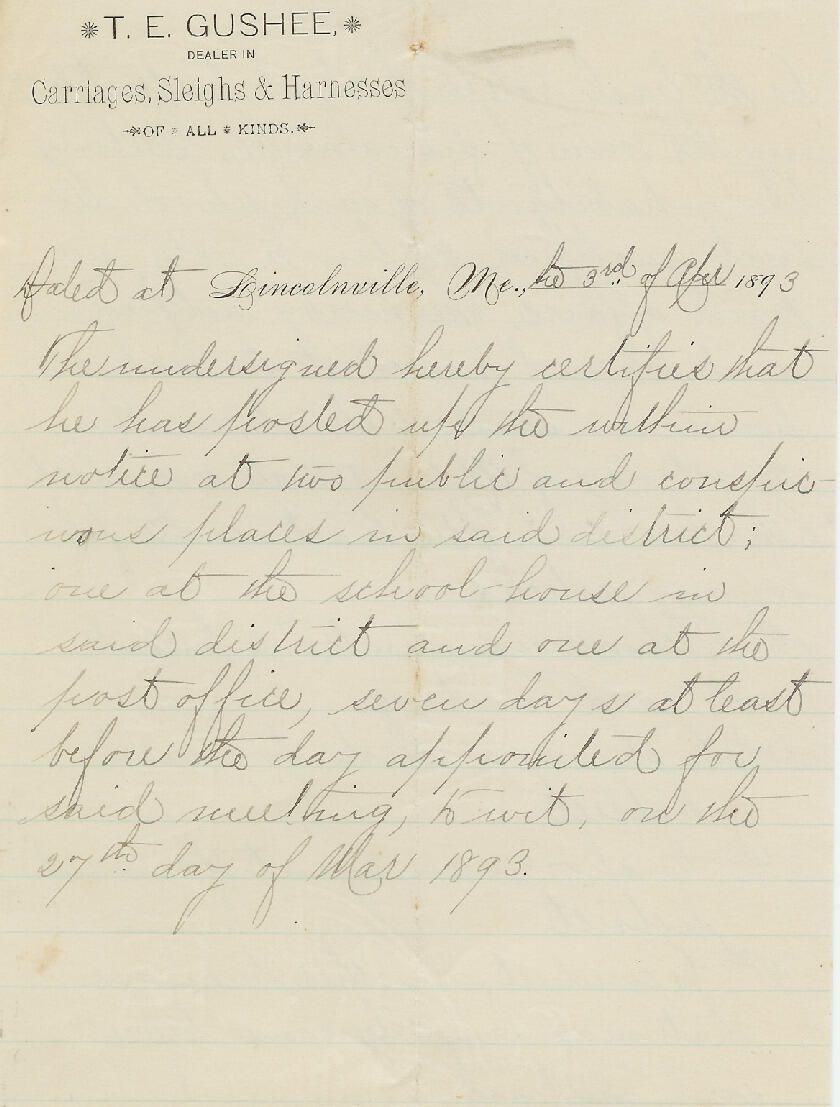 T. E. GUSHEE,
DEALER IN
Carriages, Sleighs & Harnesses
OF * ALL * KINDS.
Dated at Lincolnville, Me., the 3rd. of Apr 1893
The undersigned hereby certifies that
he has posted up the within
notice at two public and conspic-
uous places in said district;
one at the school-house in
said district and one at the
post office, seven days at least
before the day appointed for
said meeting, to wit, on the
27th day of Mar 1893.